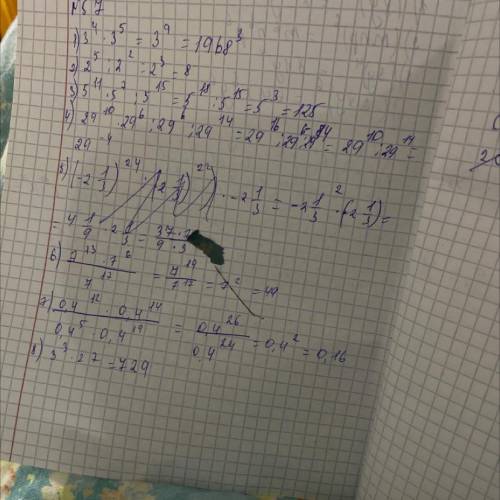 № 57
1) 3⁴ · 3⁵ = 3⁹ = 19683
2) 2⁵ : 2² = 2³ = 8
3) 5¹⁴ · 5² : 5¹⁵ = 5¹⁸ : 5¹⁵ = 5³ = 125
4) 29¹⁰ · 29⁶ : 29⁶ : 29¹⁴ = 29¹⁶ : = 29¹⁰ : 29¹⁴ =
29⁻⁴
5) (-2 1/3)²⁴ · · -2 1/3 = -2 1/3 ² · (-2 1/3) =
= 4 1/9 · 2 1/3 = 37 · / 9 · 3
6) 7¹³ · 7⁶ / 7¹⁷ = 7¹⁹ / 7¹⁷ = 7² = 49
7) 0,4¹² · 0,4¹⁴ / 0,4⁵ · 0,4¹⁹ = 0,4²⁶ / 0,4²⁴ = 0,4² = 0,16
8) 3³ · 27 = 729